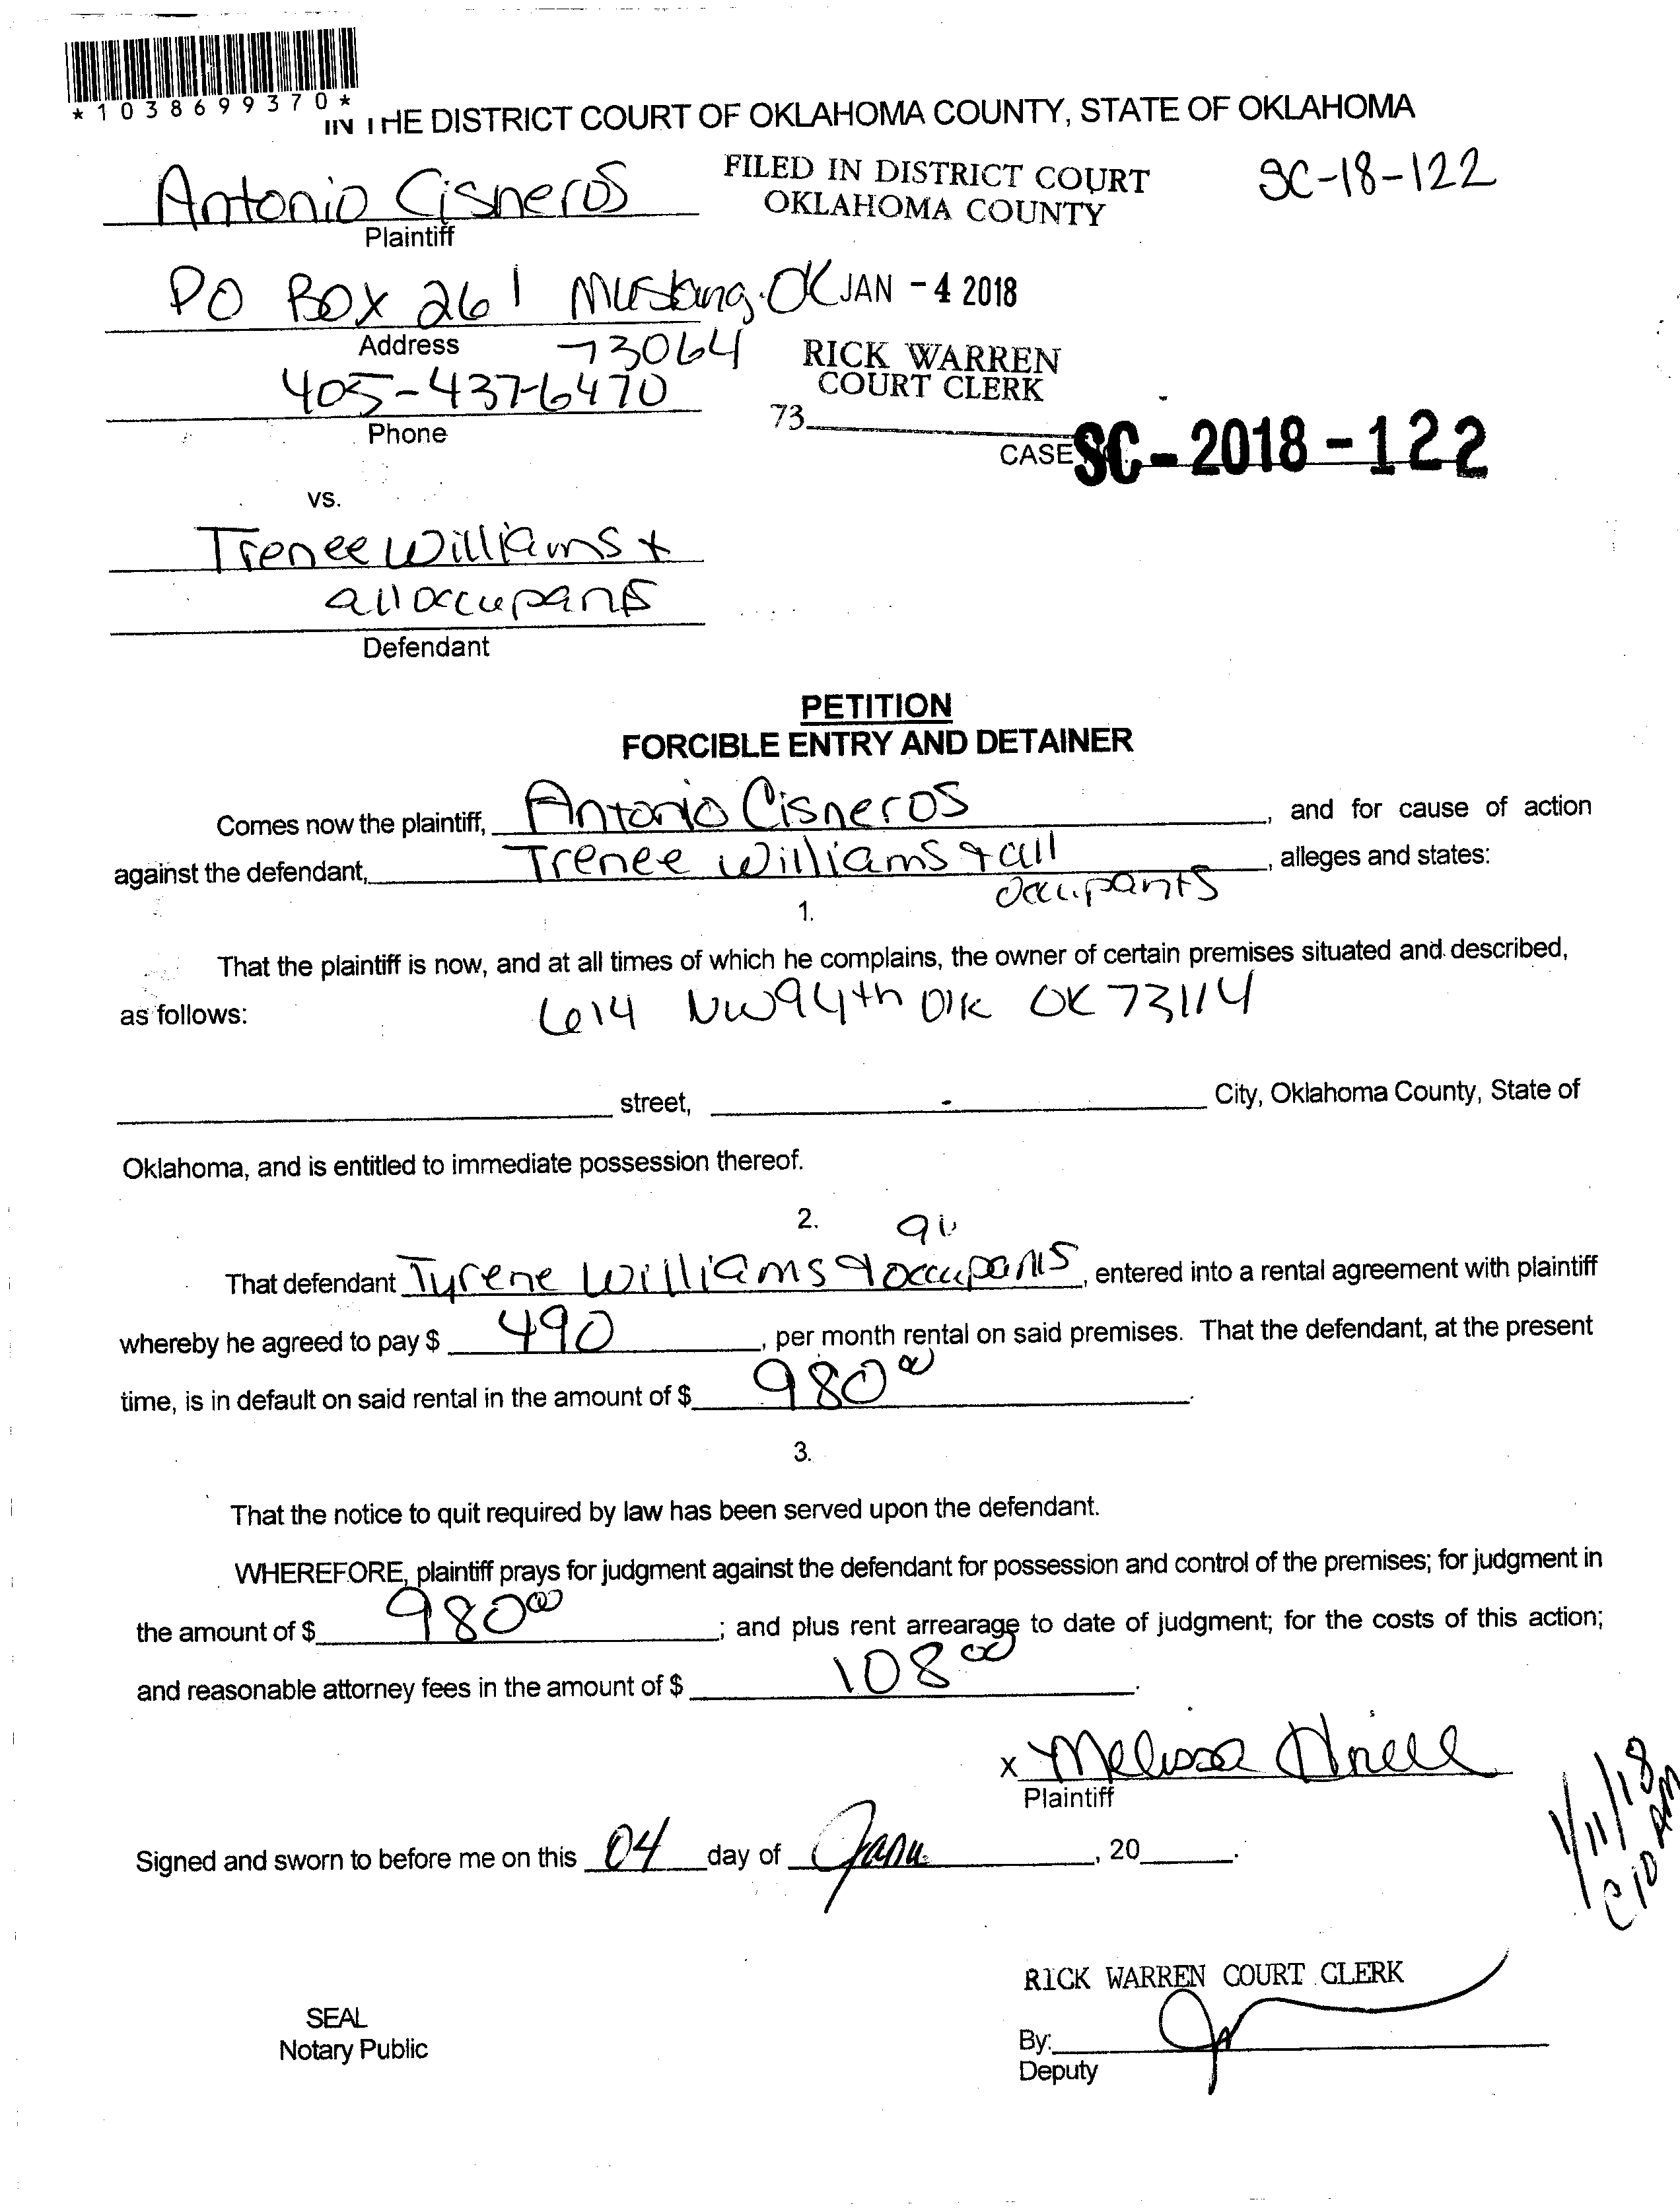 *1038699370*
IN THE DISTRICT COURT OF OKLAHOMA COUNTY, STATE OF OKLAHOMA
Antonio Cisneros
Plaintiff
FILED IN DISTRICT COURT
OKLAHOMA COUNTY
SC-18-122
PO Box 261 Mustang OK
JAN - 4 2018
Address
73064
RICK WARREN
COURT CLERK
405-437-6470
Phone
73
CASE SC-2018-122
vs.
Trenee Williams +
all occupants
Defendant
PETITION
FORCIBLE ENTRY AND DETAINER
Comes now the plaintiff, Antonio Cisneros, and for cause of action
against the defendant, Trenee Williams + all occupants, alleges and states:
1.
That the plaintiff is now, and at all times of which he complains, the owner of certain premises situated and described,
as follows: 614 NW 94th OK OK 73114
street, City, Oklahoma County, State of
Oklahoma, and is entitled to immediate possession thereof.
2.
That defendant Tyrene Williams + all occupants, entered into a rental agreement with plaintiff
whereby he agreed to pay $ 490, per month rental on said premises. That the defendant, at the present
time, is in default on said rental in the amount of $ 980 00.
3.
That the notice to quit required by law has been served upon the defendant.
WHEREFORE, plaintiff prays for judgment against the defendant for possession and control of the premises; for judgment in
the amount of $ 980 00; and plus rent arrearage to date of judgment; for the costs of this action;
and reasonable attorney fees in the amount of $ 108 00.
x Melissa
Plaintiff
1/11/18
@ 10 AM
Signed and sworn to before me on this 04 day of Janu, 20 .
RICK WARREN COURT CLERK
SEAL
Notary Public
By:
Deputy